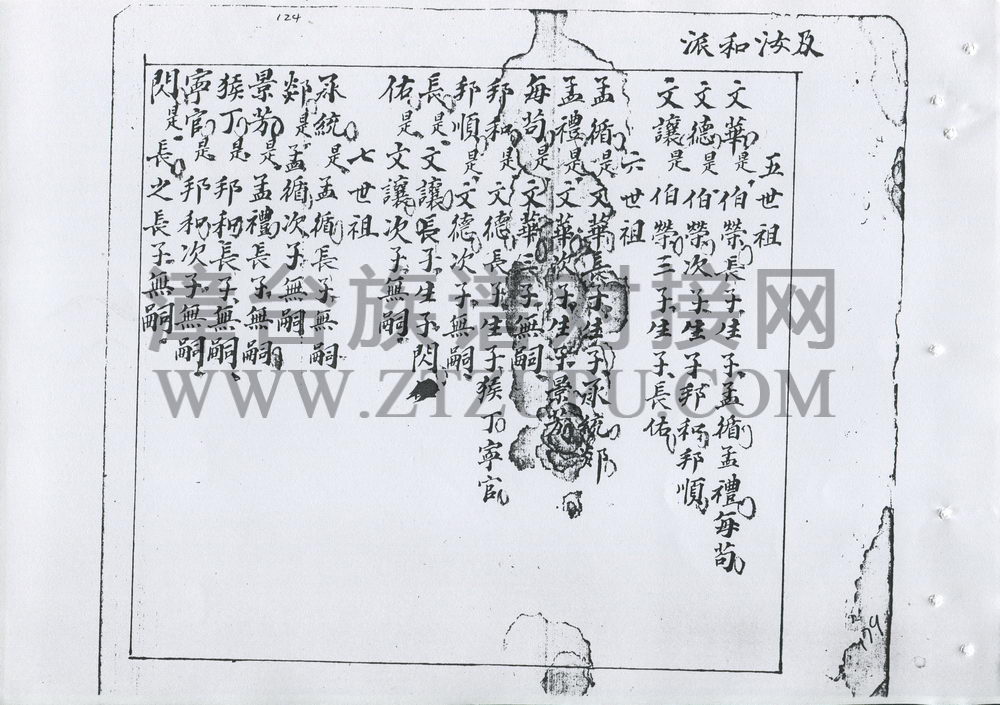 124
及汝和派
五世祖
文華是伯榮長子生子孟循孟禮每苟
文德是伯榮次子生子邦和邦順
文讓是伯榮三子生子長佑
六世祖
孟循是文華長子生子承統郯
孟禮是文華次子生子景芴
每苟是文華三子無嗣
邦和是文德長子生子猴丁寧官
邦順是文德次子無嗣
長是文讓長子生子閃
佑是文讓次子無嗣
七世祖
承統是孟循長子無嗣
郯是孟循次子無嗣
景芴是孟禮長子無嗣
猴丁是邦和長子無嗣
寧官是邦和次子無嗣
閃是長之長子無嗣
漳台族谱对接网
WWW.ZTZUPU.COM